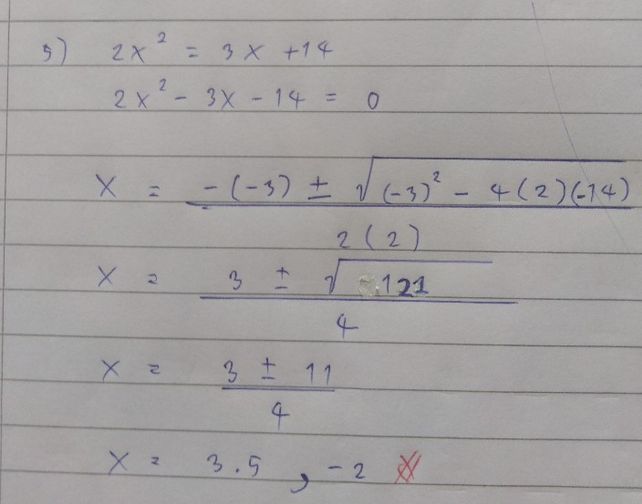 5) 2x² = 3x + 14
2x² - 3x - 14 = 0
x = (-(-3) ± √((-3)² - 4(2)(-14))) / 2(2)
x = (3 ± √121) / 4
x = (3 ± 11) / 4
x = 3.5 , -2